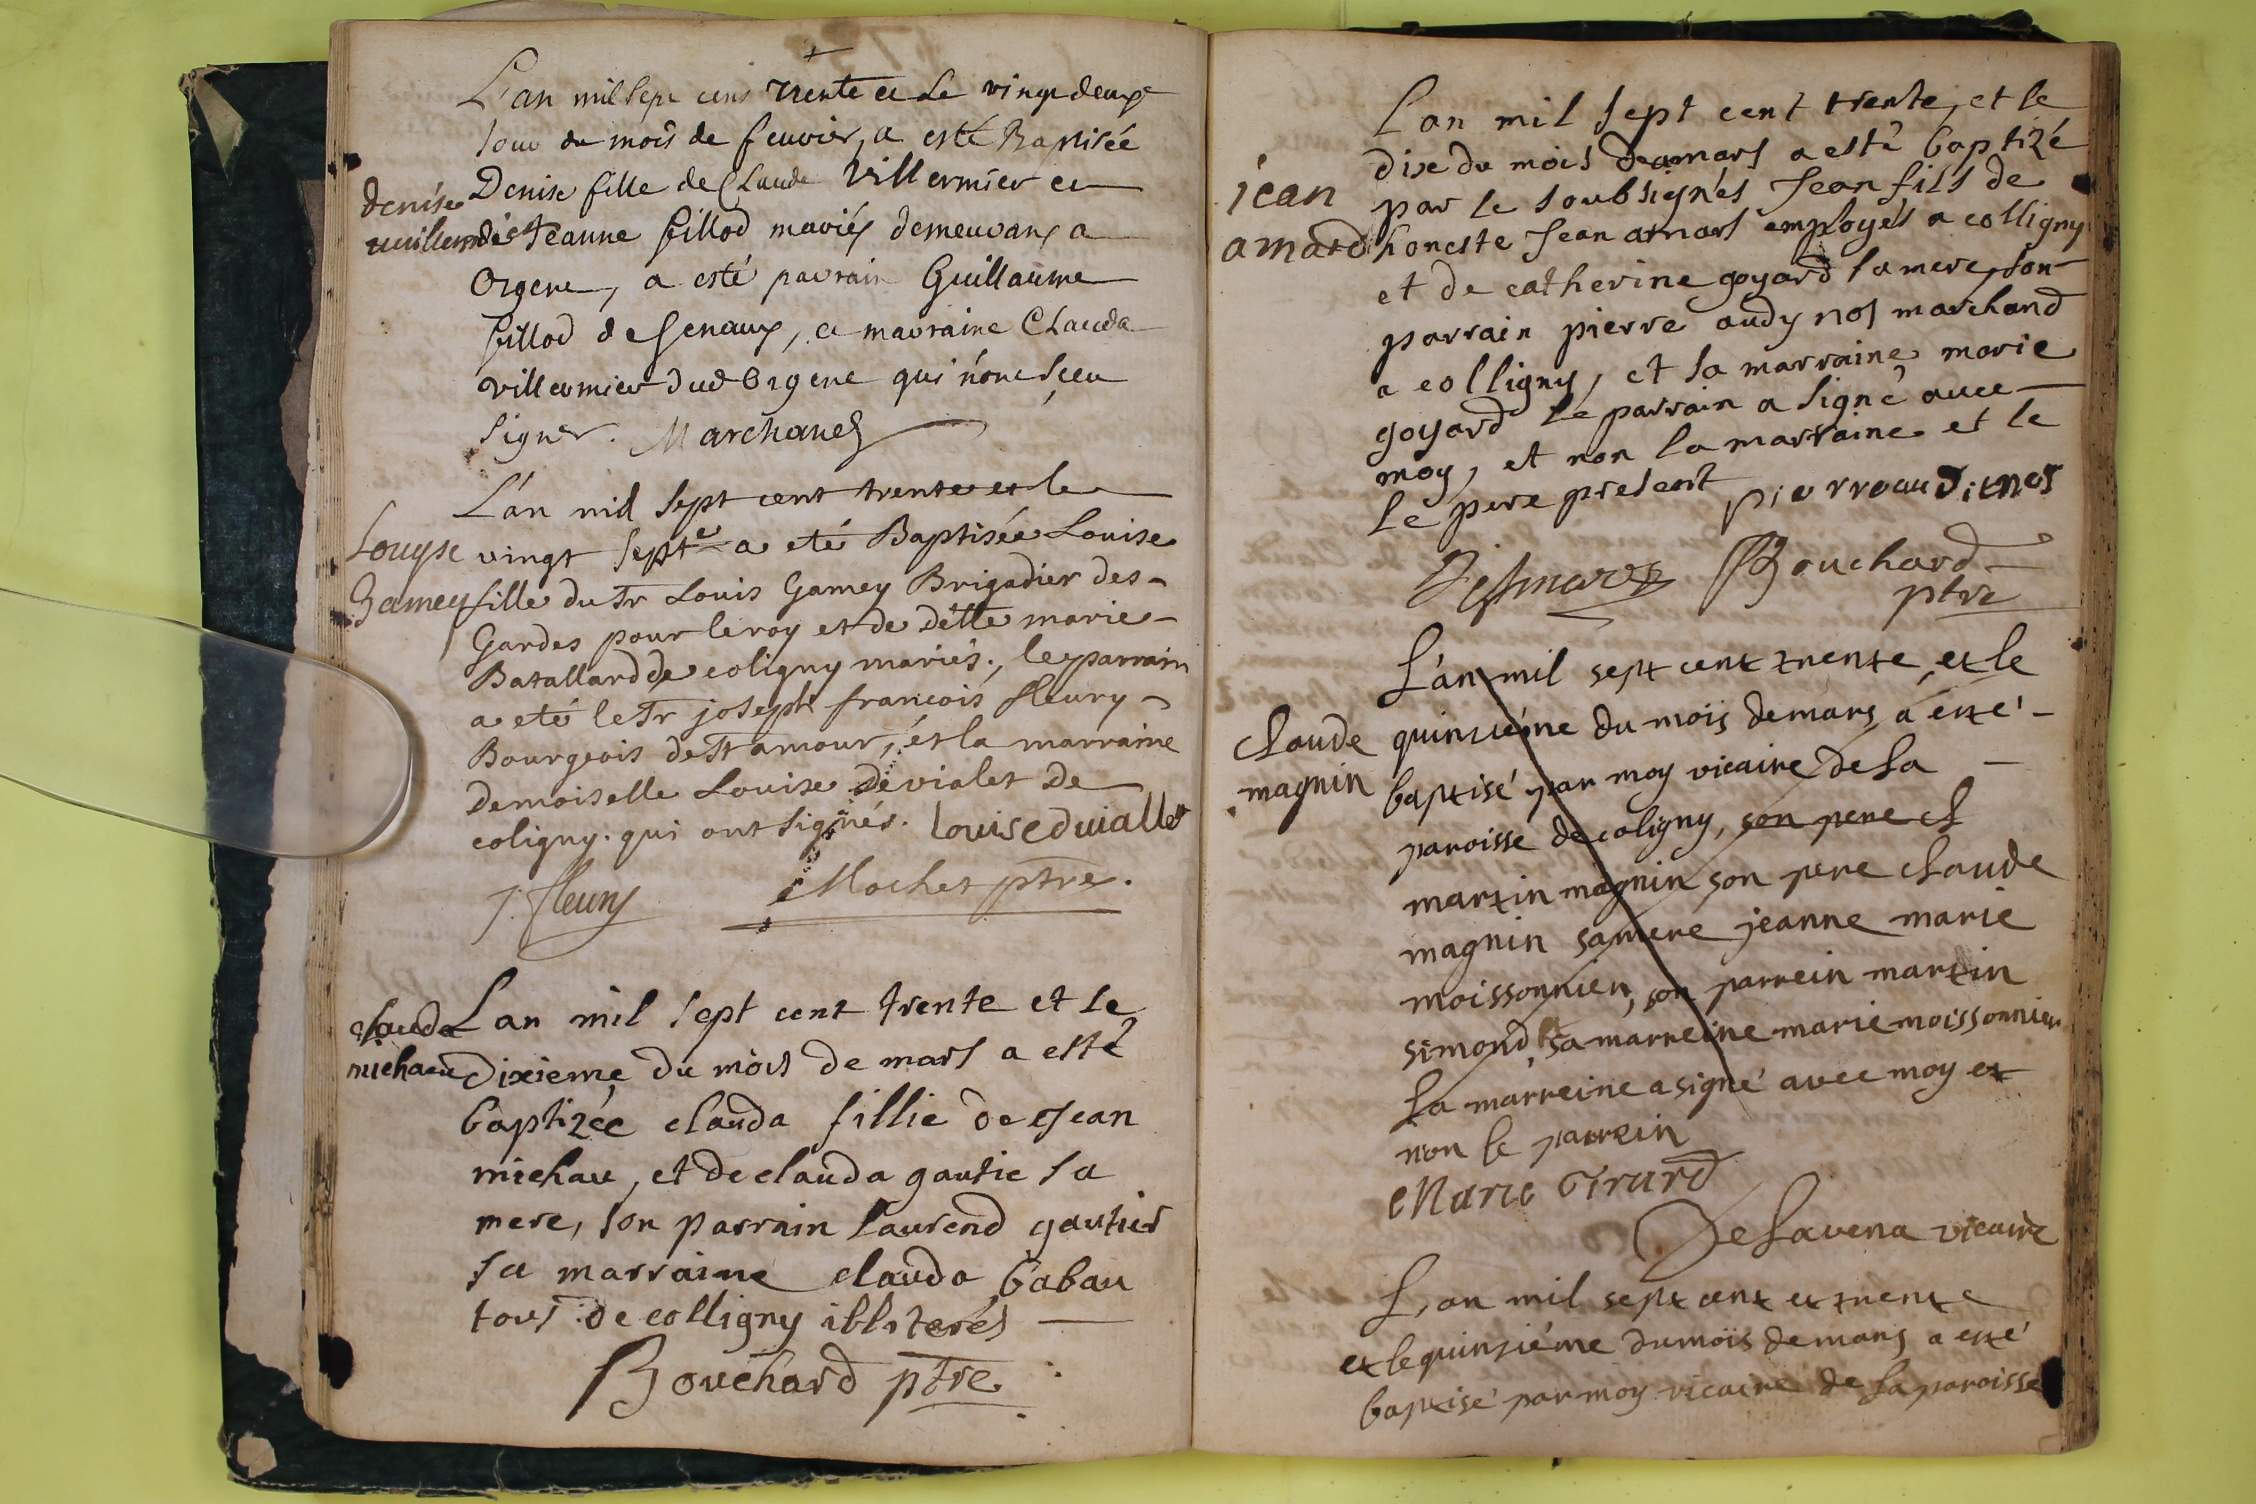 L'an mil sept cens trente et le vingt deuxe
Jour du mois de feuvrier, a esté Baptisée
denise
Denise fille de Claude Villermier et
de Jeanne fillod mariés demeurans a
Orgene, a esté parrain Guillaume
fillod de Senaux, et marraine Clauda
Villermier dud Orgene qui n'ont sçeu
signer. Marchand
L'an mil sept cent trente et le
Louyse
vingt septe a eté Baptisée Louise
Gamey
fille du Sr Louis Gamey Brigadier des
Gardes pour le roy et de Delle marie
Batallard de coligny mariés, le parrain
a eté le Sr joseph francois fleury
Bourgeois de St amour, et la marraine
Demoiselle Louise devialet De
coligny. qui ont signés. Louise duiallet
J. fleury Mochet ptre.
clauda
Lan mil sept cent trente et le
michau
dixieme du mois de mars a esté
baptizée clauda fillie de Jean
michau, et de clauda gautie sa
mere, son parrain laurend gautier
sa marraine clauda babau
tous de colligny illiterés
Bouchard ptre
Lan mil sept cent trente, et le
dixe du mois de mars a esté baptizé
jean
par le soubsignés Jean fils de
amard
honeste Jean amars employés a colligny
et de catherine goyard sa mere, son
parrain pierre audy nos marchand
a colligny, et sa marraine marie
goyard le parrain a signé avec
moy, et non la marraine et le
le pere present pierre audi enos
Bouchard
ptre
L'an mil sept cent trente, et le
claude
quinziéme du mois de mars a esté
magnin
baptisé par moy vicaire de la
paroisse de coligny, son pere cl
martin magnin son pere claude
magnin sa mere jeanne marie
moissonnier, son parrein martin
simond sa marreine marie moissonnier
la marreine a signé avec moy et
non le parrein
Marie Girard
Delavena vicaire
L'an mil sept cent et trente
et le quinziéme du mois de mars a esté
baptisé par moy vicaire de la paroisse